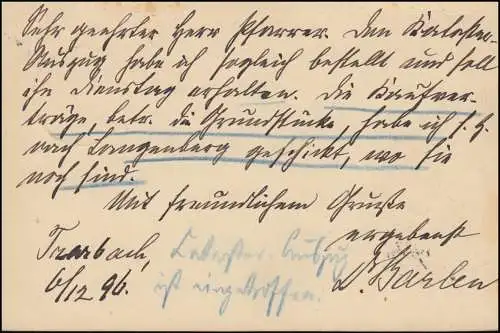 Sehr geehrter Herr Pfarrer. Den Kataster-
Auszug habe ich sogleich bestellt und soll
ihn Dienstag erhalten. Die Kaufver-
träge, betr. die Grundstücke, habe ich s. Z.
nach Langenberg geschickt, wo sie
noch sind.
Mit freundlichem Grusse
ergebenst
Traarbach,
6/12 96.
Kataster-Auszug
ist eingetroffen.